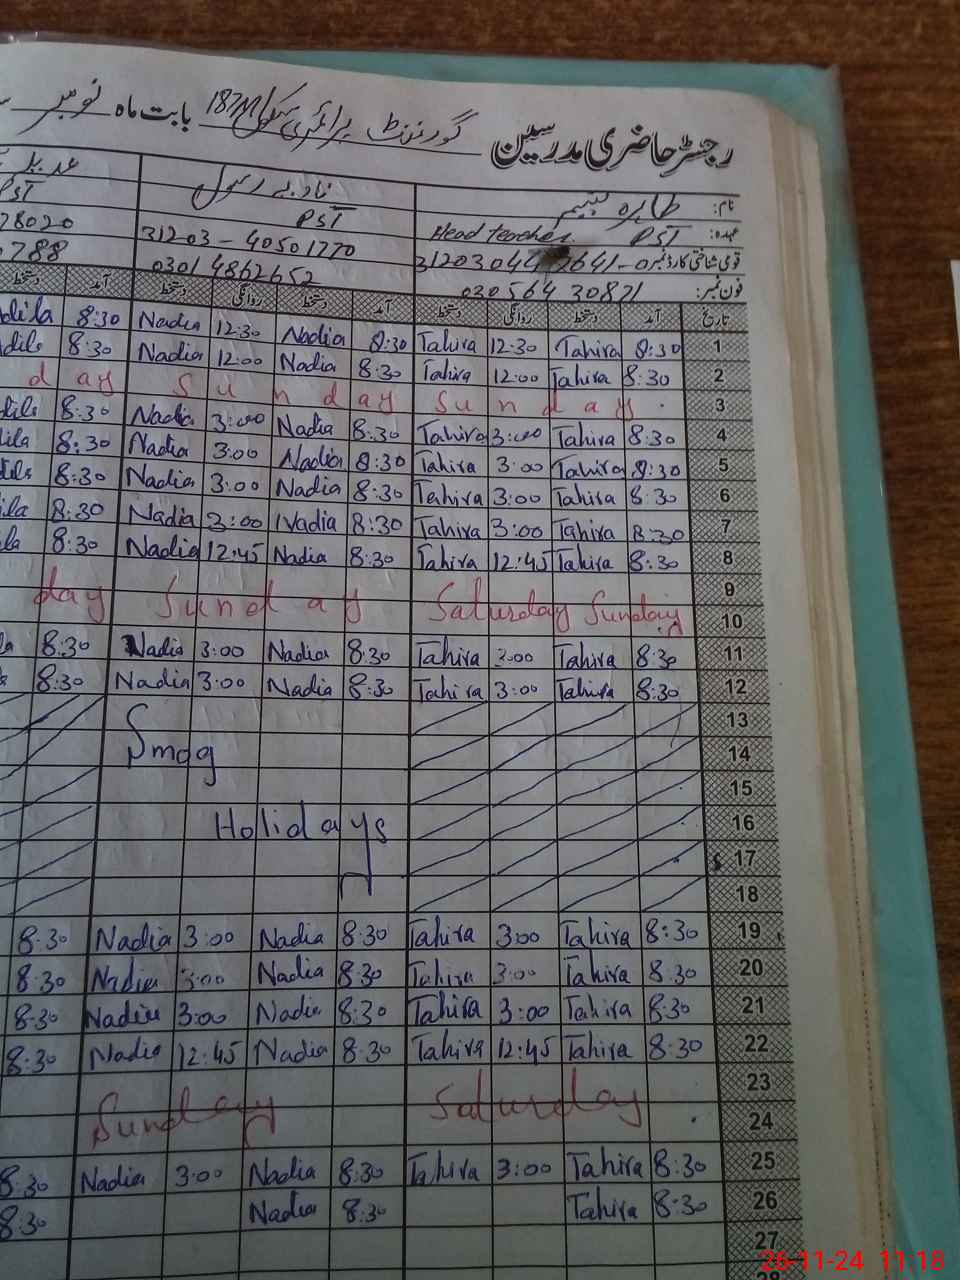 رجسٹر حاضری مدرسین گورنمنٹ پرائمری سکول 187M بابت ماہ نومبر
نام: طاہرہ نادیہ رسول
عہدہ: PST Head teacher PST PST
قومی شناختی کارڈ نمبر 31203-40501770 78020
فون نمبر: 03056430871 03014862652 788
تاریخ آمد دستخط روانگی دستخط آمد دستخط روانگی دستخط آمد
dila 8:30 Nadia 12:30 Nadia 8:30 Tahira 12:30 Tahira 8:30 1
dila 8:30 Nadia 12:00 Nadia 8:30 Tahira 12:00 Tahira 8:30 2
day Sunday Sunday 3
dila 8:30 Nadia 3:00 Nadia 8:30 Tahira 3:00 Tahira 8:30 4
ila 8:30 Nadia 3:00 Nadia 8:30 Tahira 3:00 Tahira 8:30 5
dila 8:30 Nadia 3:00 Nadia 8:30 Tahira 3:00 Tahira 8:30 6
ila 8:30 Nadia 3:00 Nadia 8:30 Tahira 3:00 Tahira 8:30 7
la 8:30 Nadia 12:45 Nadia 8:30 Tahira 12:45 Tahira 8:30 8
9
day Sunday Saturday Sunday 10
la 8:30 Nadia 3:00 Nadia 8:30 Tahira 3:00 Tahira 8:30 11
8:30 Nadia 3:00 Nadia 8:30 Tahira 3:00 Tahira 8:30 12
13
Smog 14
15
Holidays 16
17
18
8:30 Nadia 3:00 Nadia 8:30 Tahira 3:00 Tahira 8:30 19
8:30 Nadia 3:00 Nadia 8:30 Tahira 3:00 Tahira 8:30 20
8:30 Nadia 3:00 Nadia 8:30 Tahira 3:00 Tahira 8:30 21
8:30 Nadia 12:45 Nadia 8:30 Tahira 12:45 Tahira 8:30 22
23
Sunday Saturday 24
8:30 Nadia 3:00 Nadia 8:30 Tahira 3:00 Tahira 8:30 25
8:30 Nadia 8:30 Tahira 8:30 26
27
28
26-11-24 11:18